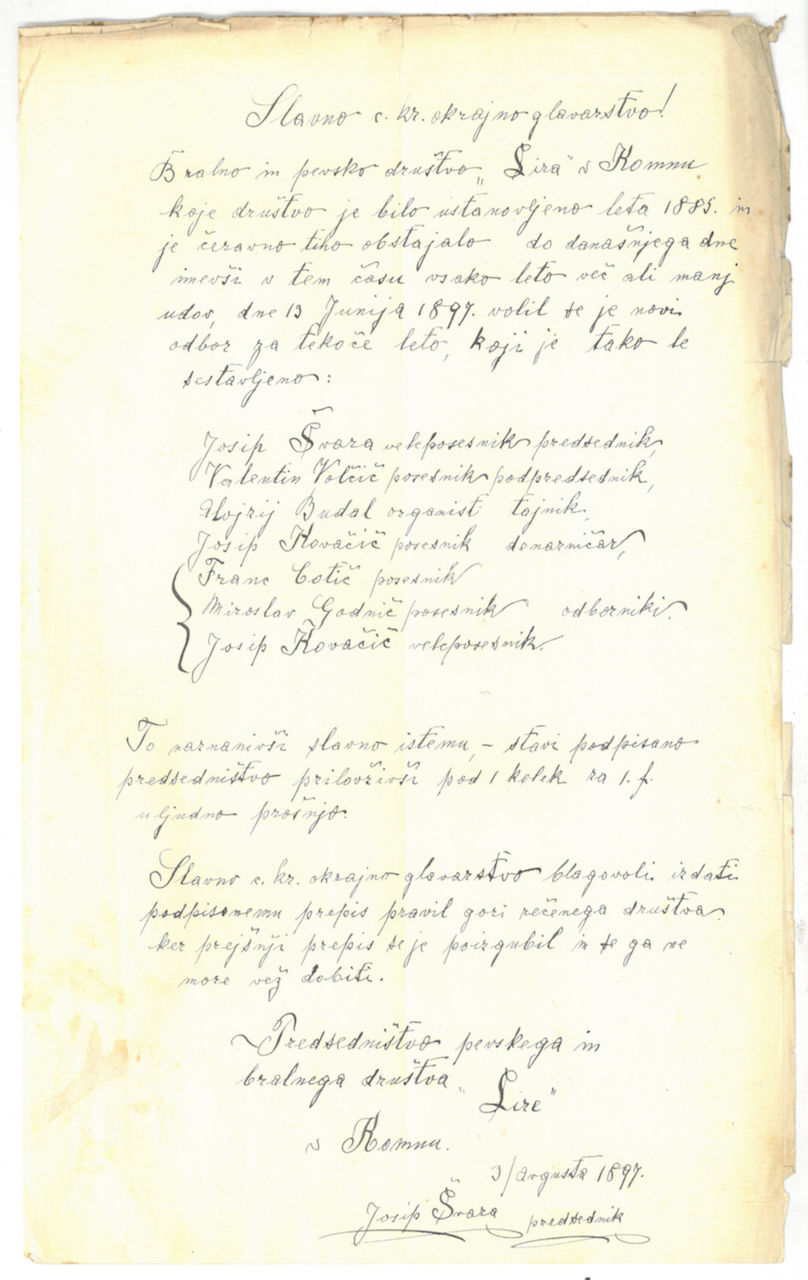 Slavno c. kr. okrajno glavarstvo!
Bralno in pevsko društvo „Lira“ v Komnu
koje društvo je bilo ustanovljeno leta 1885. in
je čeravno tiho obstajalo do današnjega dne
imevši v tem času vsako leto več ali manj
udov, dne 13 Junija 1897. volil se je novi
odbor za tekoče leto, koji je tako le
sestavljeno:
Josip Švara veleposesnik predsednik,
Valentin Volčič posesnik podpredsednik,
Alojzij Budal organist tajnik,
Josip Kovačič posesnik denarničar,
Franc Cotič posesnik
Miroslav Godnič posesnik odborniki.
Josip Kovačič veleposesnik.
To naznanivši slavno istemu, – stavi podpisano
predsedništvo priloživši pod 1 kolek za 1. f.
uljudno prošnjo.
Slavno c. kr. okrajno glavarstvo blagovoli izdati
podpisanemu prepis pravil gori rečenega društva
ker prejšnji prepis se je poizgubil in se ga ne
more več dobiti.
Predsedništvo pevskega in
bralnega društva „Lire“
v Komnu.
3/avgusta 1897.
Josip Švara predsednik